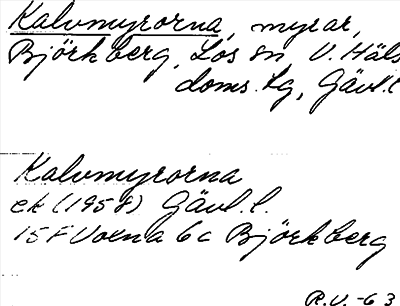 Kalvmyrorna, myrar,
Björkberg, Los sn, V. Häls
doms.lg, Gävl.l
Kalvmyrorna
ek (1958) Gävl.l.
15F Voxna 6c Björkberg
R.V. -63